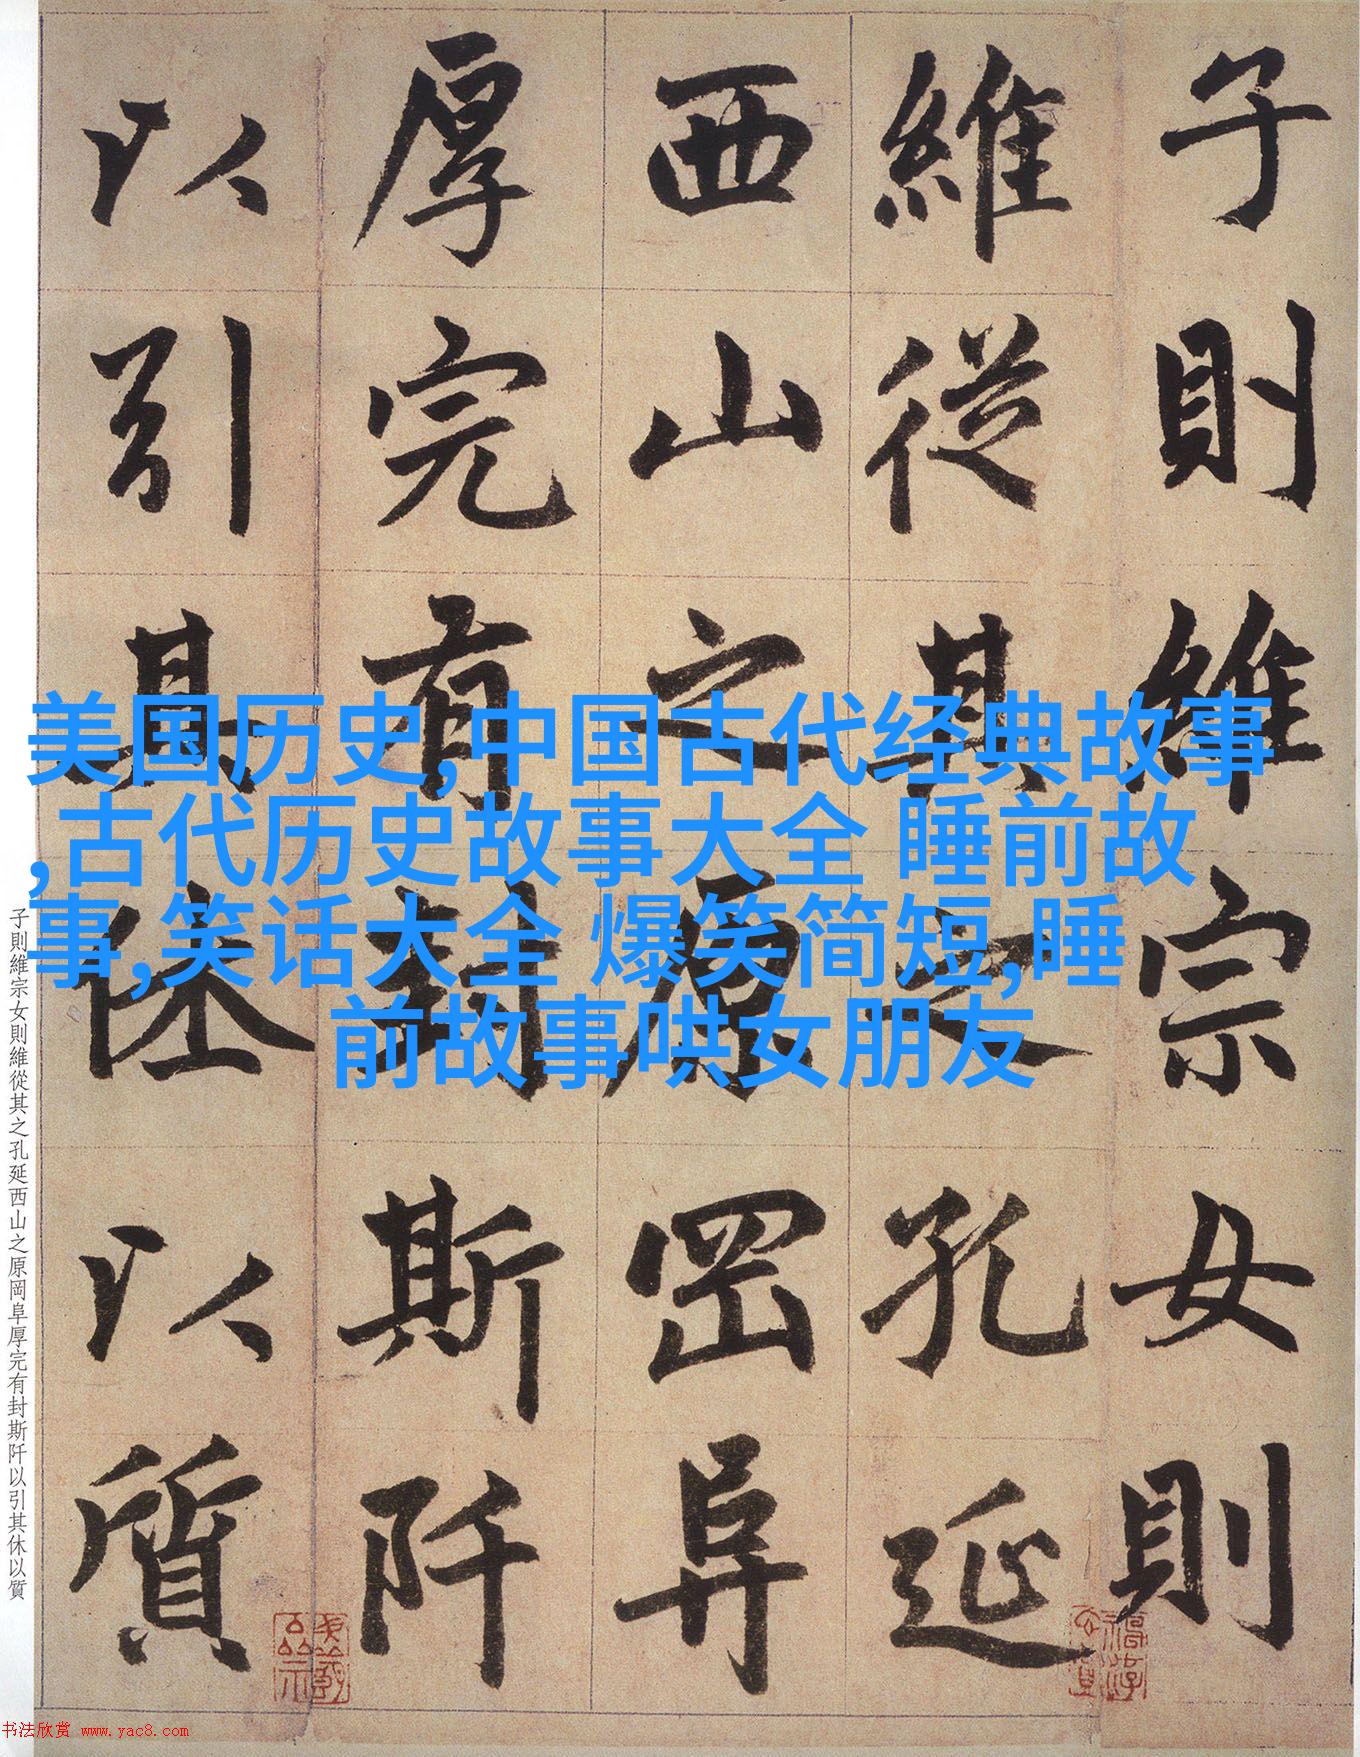 子則維宗女則
維從其之孔延
西山之原岡阜
厚完有封斯阡
以引其休以質
美国历史,中国古代经典故事
,古代历史故事大全 睡前故
事,笑话大全 爆笑简短,睡
前故事哄女朋友
子則維宗女則維從其之孔延西山之原岡阜厚完有封斯阡以引其休以質
书法欣赏 www.yac8.com